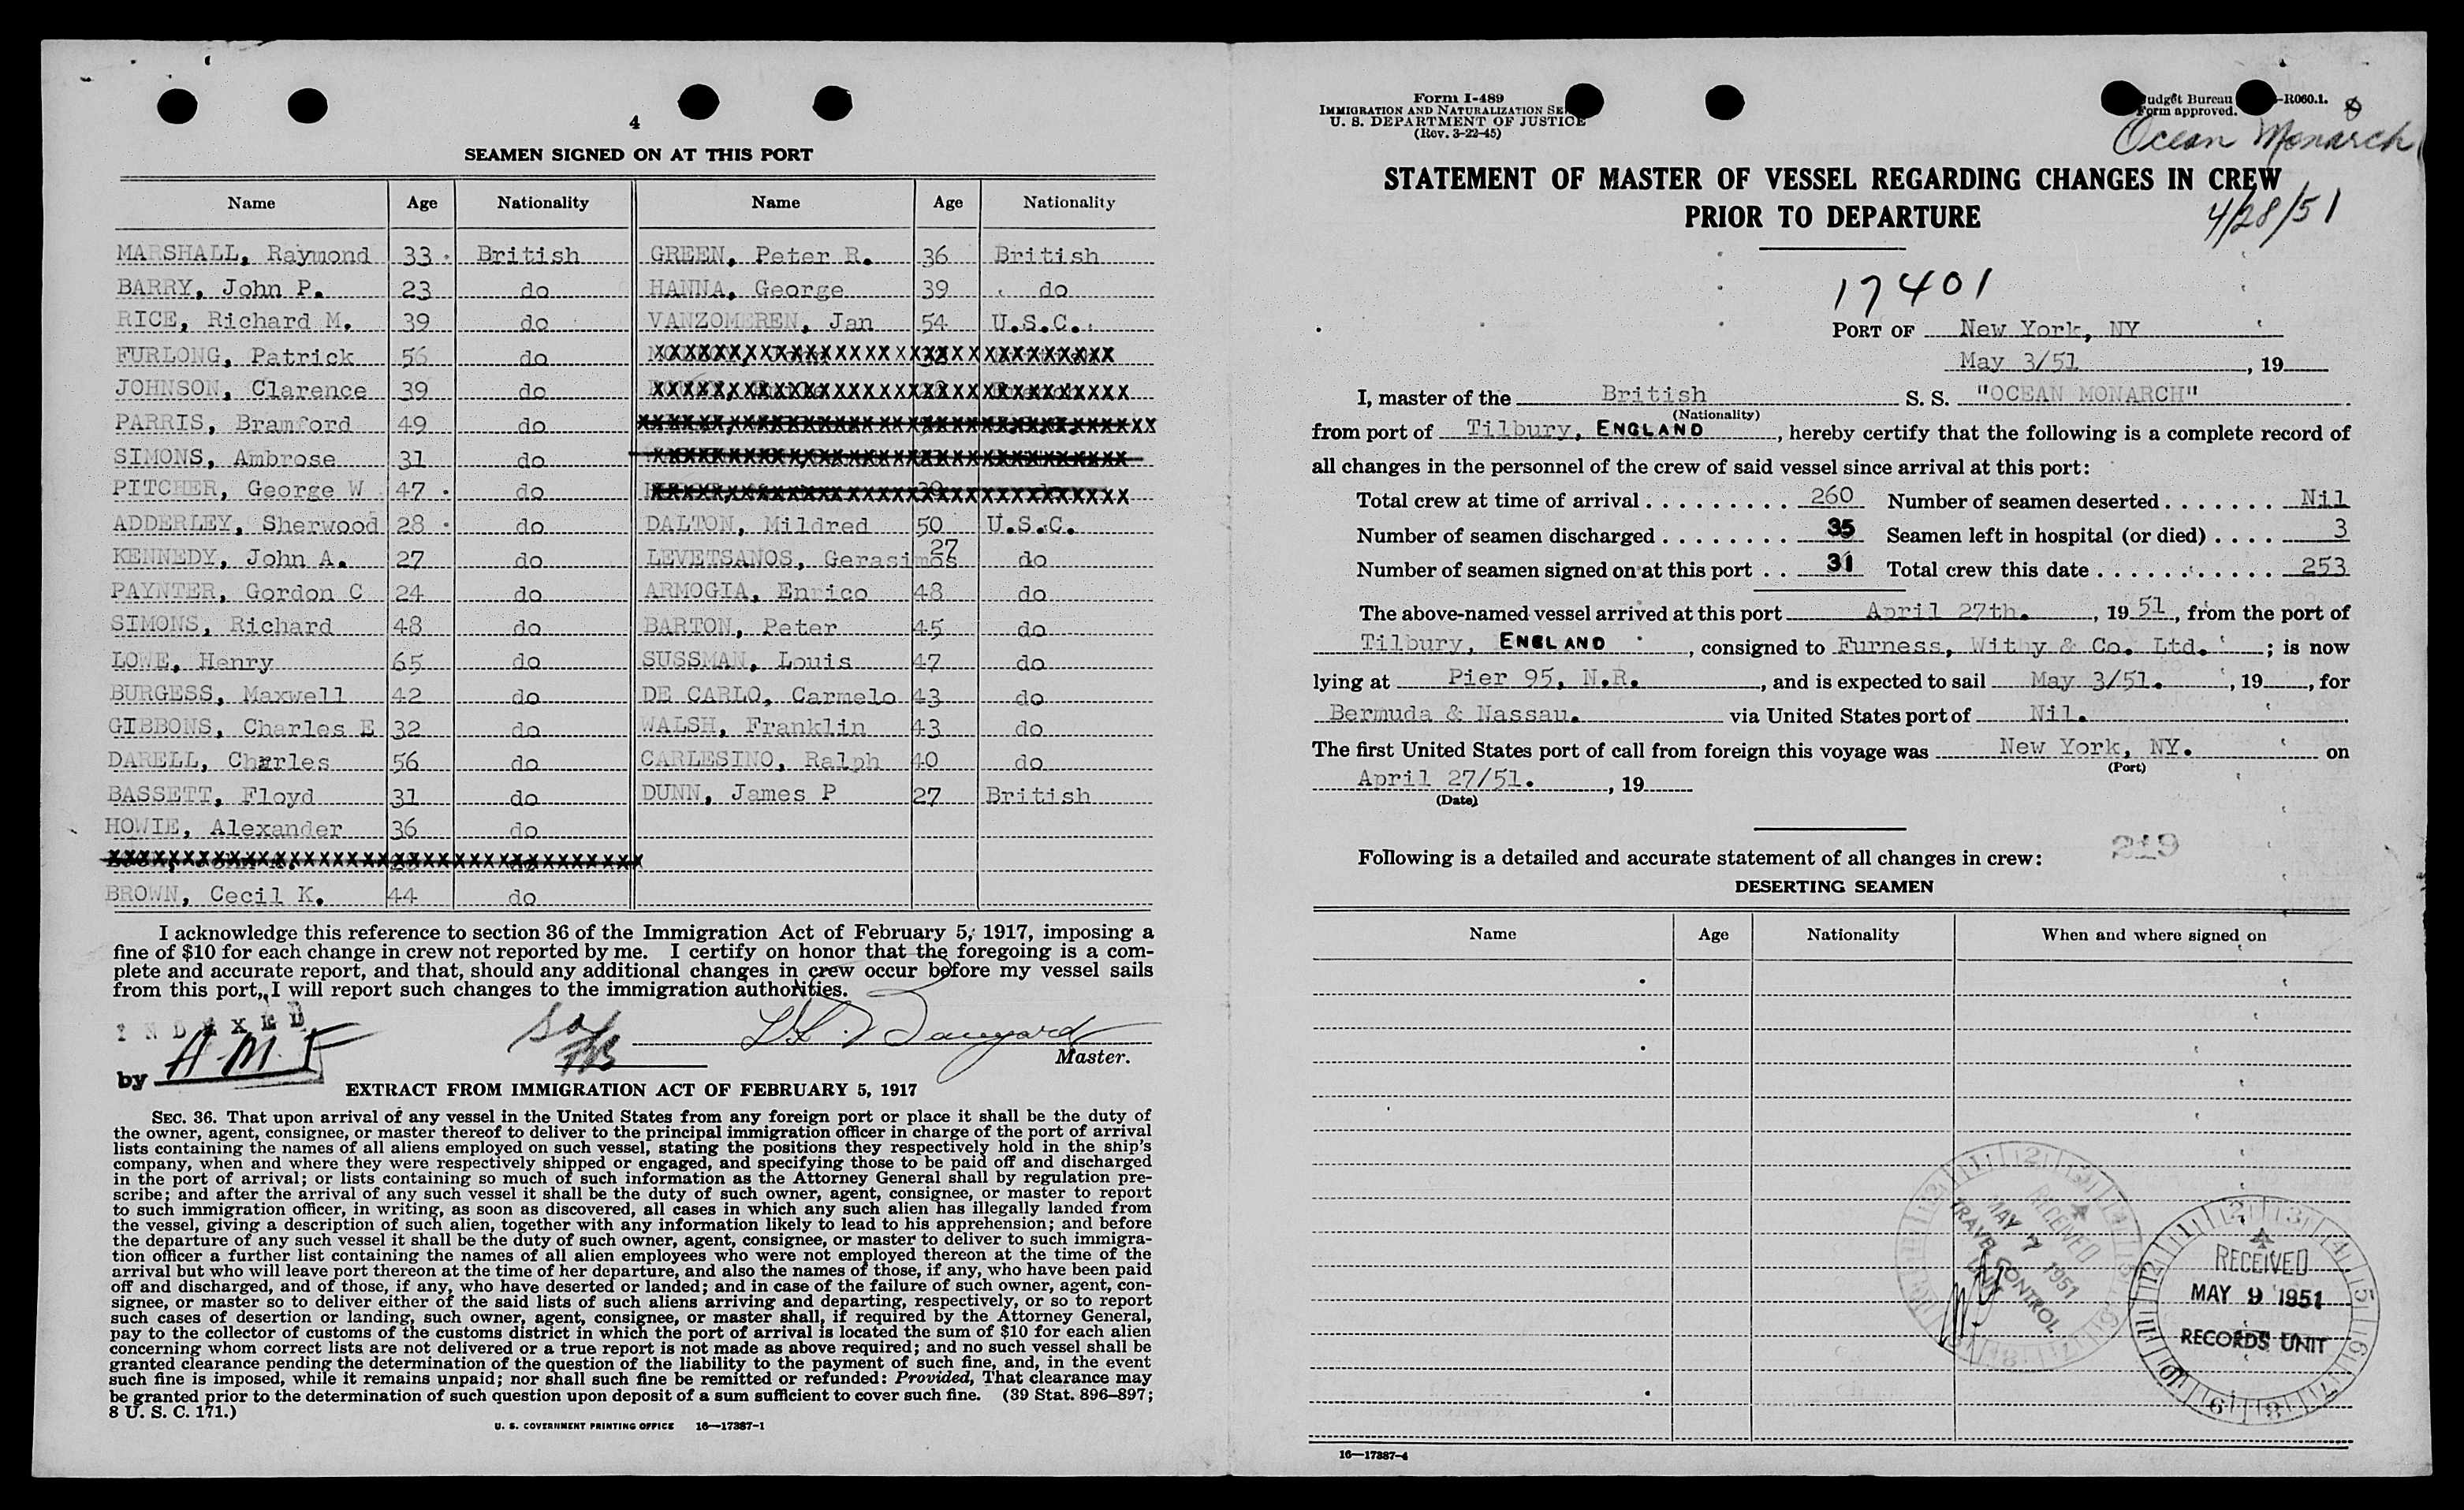 4
SEAMEN SIGNED ON AT THIS PORT
Name Age Nationality Name Age Nationality
MARSHALL, Raymond 33 British GREEN, Peter R. 36 British
BARRY, John P. 23 do HANNA, George 39 do
RICE, Richard M. 39 do VANZOMEREN, Jan 54 U.S.C.
FURLONG, Patrick 56 do
JOHNSON, Clarence 39 do
PARRIS, Bramford 49 do
SIMONS, Ambrose 31 do
PITCHER, George W 47 do
ADDERLEY, Sherwood 28 do DALTON, Mildred 50 U.S.C.
KENNEDY, John A. 27 do LEVETSANOS, Gerasimos 27 do
PAYNTER, Gordon C 24 do ARMOGIA, Enrico 48 do
SIMONS, Richard 48 do BARTON, Peter 45 do
LOWE, Henry 65 do SUSSMAN, Louis 47 do
BURGESS, Maxwell 42 do DE CARLO, Carmelo 43 do
GIBBONS, Charles E 32 do WALSH, Franklin 43 do
DARELL, Charles 56 do CARLESINO, Ralph 40 do
BASSETT, Floyd 31 do DUNN, James P 27 British
HOWIE, Alexander 36 do
BROWN, Cecil K. 44 do
I acknowledge this reference to section 36 of the Immigration Act of February 5, 1917, imposing a
fine of $10 for each change in crew not reported by me. I certify on honor that the foregoing is a com-
plete and accurate report, and that, should any additional changes in crew occur before my vessel sails
from this port, I will report such changes to the immigration authorities.
INDEXED
by A M F
Master.
EXTRACT FROM IMMIGRATION ACT OF FEBRUARY 5, 1917
SEC. 36. That upon arrival of any vessel in the United States from any foreign port or place it shall be the duty of
the owner, agent, consignee, or master thereof to deliver to the principal immigration officer in charge of the port of arrival
lists containing the names of all aliens employed on such vessel, stating the positions they respectively hold in the ship's
company, when and where they were respectively shipped or engaged, and specifying those to be paid off and discharged
in the port of arrival; or lists containing so much of such information as the Attorney General shall by regulation pre-
scribe; and after the arrival of any such vessel it shall be the duty of such owner, agent, consignee, or master to report
to such immigration officer, in writing, as soon as discovered, all cases in which any such alien has illegally landed from
the vessel, giving a description of such alien, together with any information likely to lead to his apprehension; and before
the departure of any such vessel it shall be the duty of such owner, agent, consignee, or master to deliver to such immigra-
tion officer a further list containing the names of all alien employees who were not employed thereon at the time of the
arrival but who will leave port thereon at the time of her departure, and also the names of those, if any, who have been paid
off and discharged, and of those, if any, who have deserted or landed; and in case of the failure of such owner, agent, con-
signee, or master so to deliver either of the said lists of such aliens arriving and departing, respectively, or so to report
such cases of desertion or landing, such owner, agent, consignee, or master shall, if required by the Attorney General,
pay to the collector of customs of the customs district in which the port of arrival is located the sum of $10 for each alien
concerning whom correct lists are not delivered or a true report is not made as above required; and no such vessel shall be
granted clearance pending the determination of the question of the liability to the payment of such fine, and, in the event
such fine is imposed, while it remains unpaid; nor shall such fine be remitted or refunded: Provided, That clearance may
be granted prior to the determination of such question upon deposit of a sum sufficient to cover such fine. (39 Stat. 896–897;
8 U. S. C. 171.)
U. S. GOVERNMENT PRINTING OFFICE 16—17387-1
Form I-489
IMMIGRATION AND NATURALIZATION SE
U. S. DEPARTMENT OF JUSTICE
(Rev. 3-22-45)
udget Bureau -R060.1.
Form approved.
Ocean Monarch
4/28/51
STATEMENT OF MASTER OF VESSEL REGARDING CHANGES IN CREW
PRIOR TO DEPARTURE
17401
PORT OF New York, NY
May 3/51 , 19
I, master of the British S. S. "OCEAN MONARCH"
(Nationality)
from port of Tilbury, ENGLAND , hereby certify that the following is a complete record of
all changes in the personnel of the crew of said vessel since arrival at this port:
Total crew at time of arrival 260 Number of seamen deserted Nil
Number of seamen discharged 35 Seamen left in hospital (or died) 3
Number of seamen signed on at this port 31 Total crew this date 253
The above-named vessel arrived at this port April 27th. , 19 51, from the port of
Tilbury, ENGLAND , consigned to Furness, Withy & Co. Ltd. ; is now
lying at Pier 95, N.R. , and is expected to sail May 3/51. , 19 , for
Bermuda & Nassau. via United States port of Nil.
The first United States port of call from foreign this voyage was New York, NY. on
(Port)
April 27/51. , 19
(Date)
219
Following is a detailed and accurate statement of all changes in crew:
DESERTING SEAMEN
Name Age Nationality When and where signed on
RECEIVED
MAY 7 1951
TRAVEL CONTROL
UNIT
RECEIVED
MAY 9 1951
RECORDS UNIT
16—17387-4